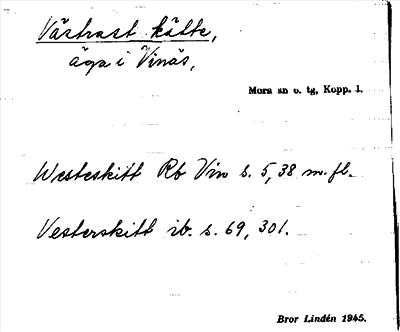 Västrast kätte,
äga i Vinäs,
Mora sn o. tg, Kopp. l.
Westeskitt Rb Vin s. 5, 38 m. fl.
Vesterskitt ib. s. 69, 301.
Bror Lindén 1945.